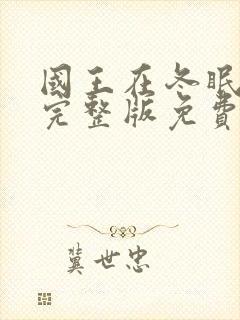 國王在冬眠
完整版免費
冀世忠